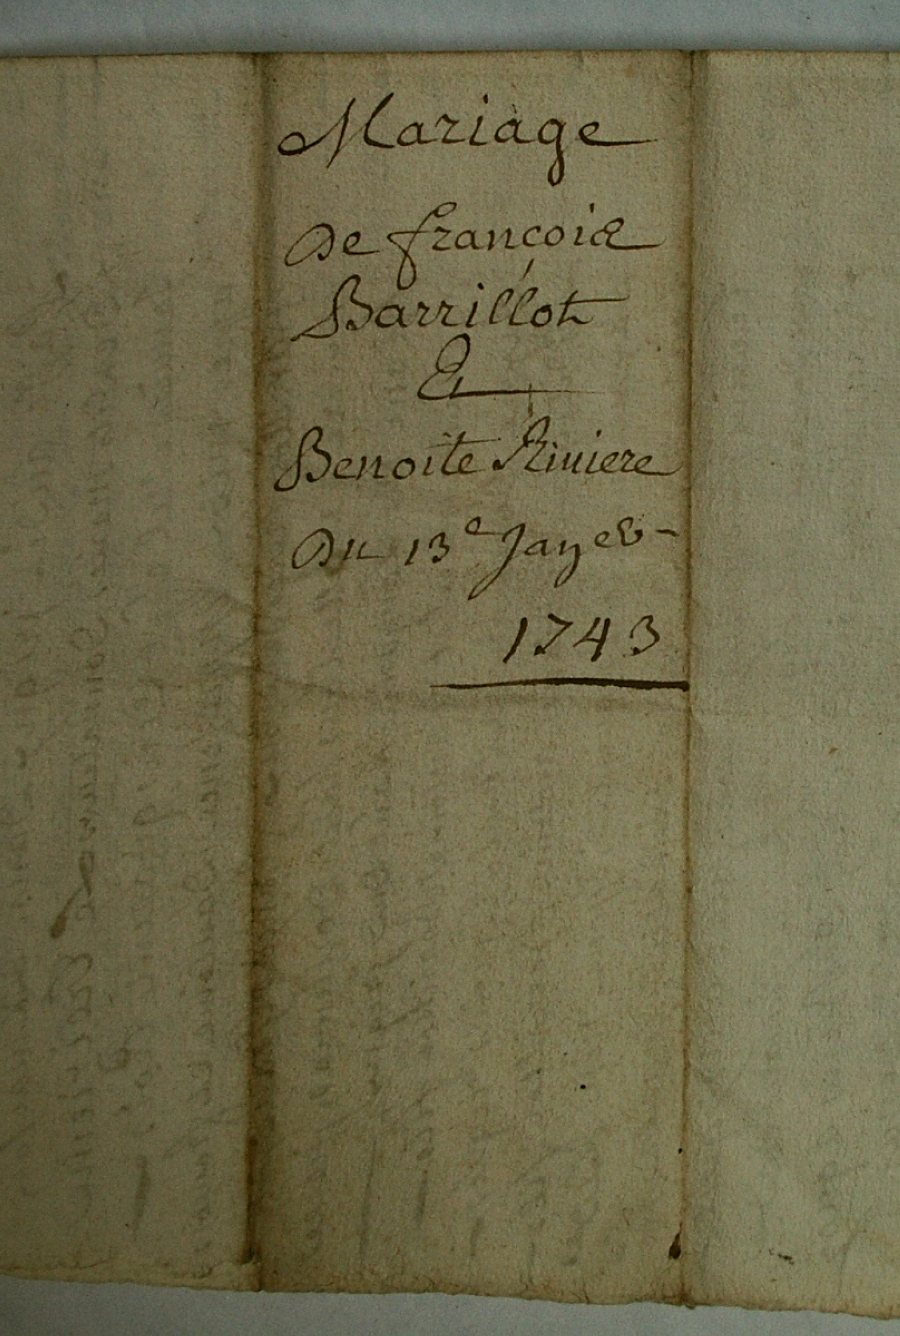 Mariage
De françois
Barrillot
&
Benoite Riuiere
Du 13e Janer
1743